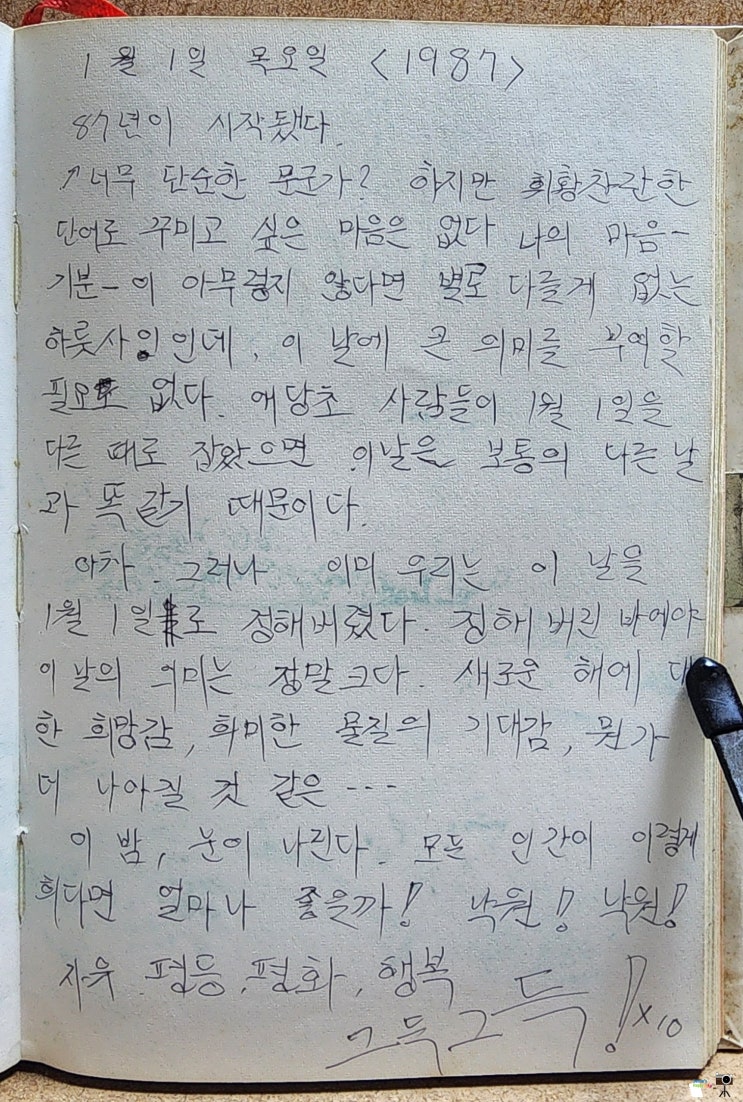 1월 1일 목요일 <1987>
87년이 시작됐다.
↗너무 단순한 문군가? 하지만 휘황찬란한
단어로 꾸미고 싶은 마음은 없다 나의 마음-
기분-이 아무렇지 않다면 별로 다를게 없는
하룻사인데, 이 날에 큰 의미를 부여할
필요도 없다. 애당초 사람들이 1월 1일을
다른 때로 잡았으면 이날은 보통의 다른날
과 똑같기 때문이다.
아차. 그러나. 이미 우리는 이 날을
1월 1일로 정해버렸다. 정해 버린 바에야
이 날의 의미는 정말 크다. 새로운 해에 대
한 희망감, 화미한 물질의 기대감, 뭔가
더 나아질 것 같은---
이 밤, 눈이 나린다. 모든 인간이 이렇게
희다면 얼마나 좋을까! 낙원! 낙원!
자유. 평등, 평화, 행복
그득그득! x10